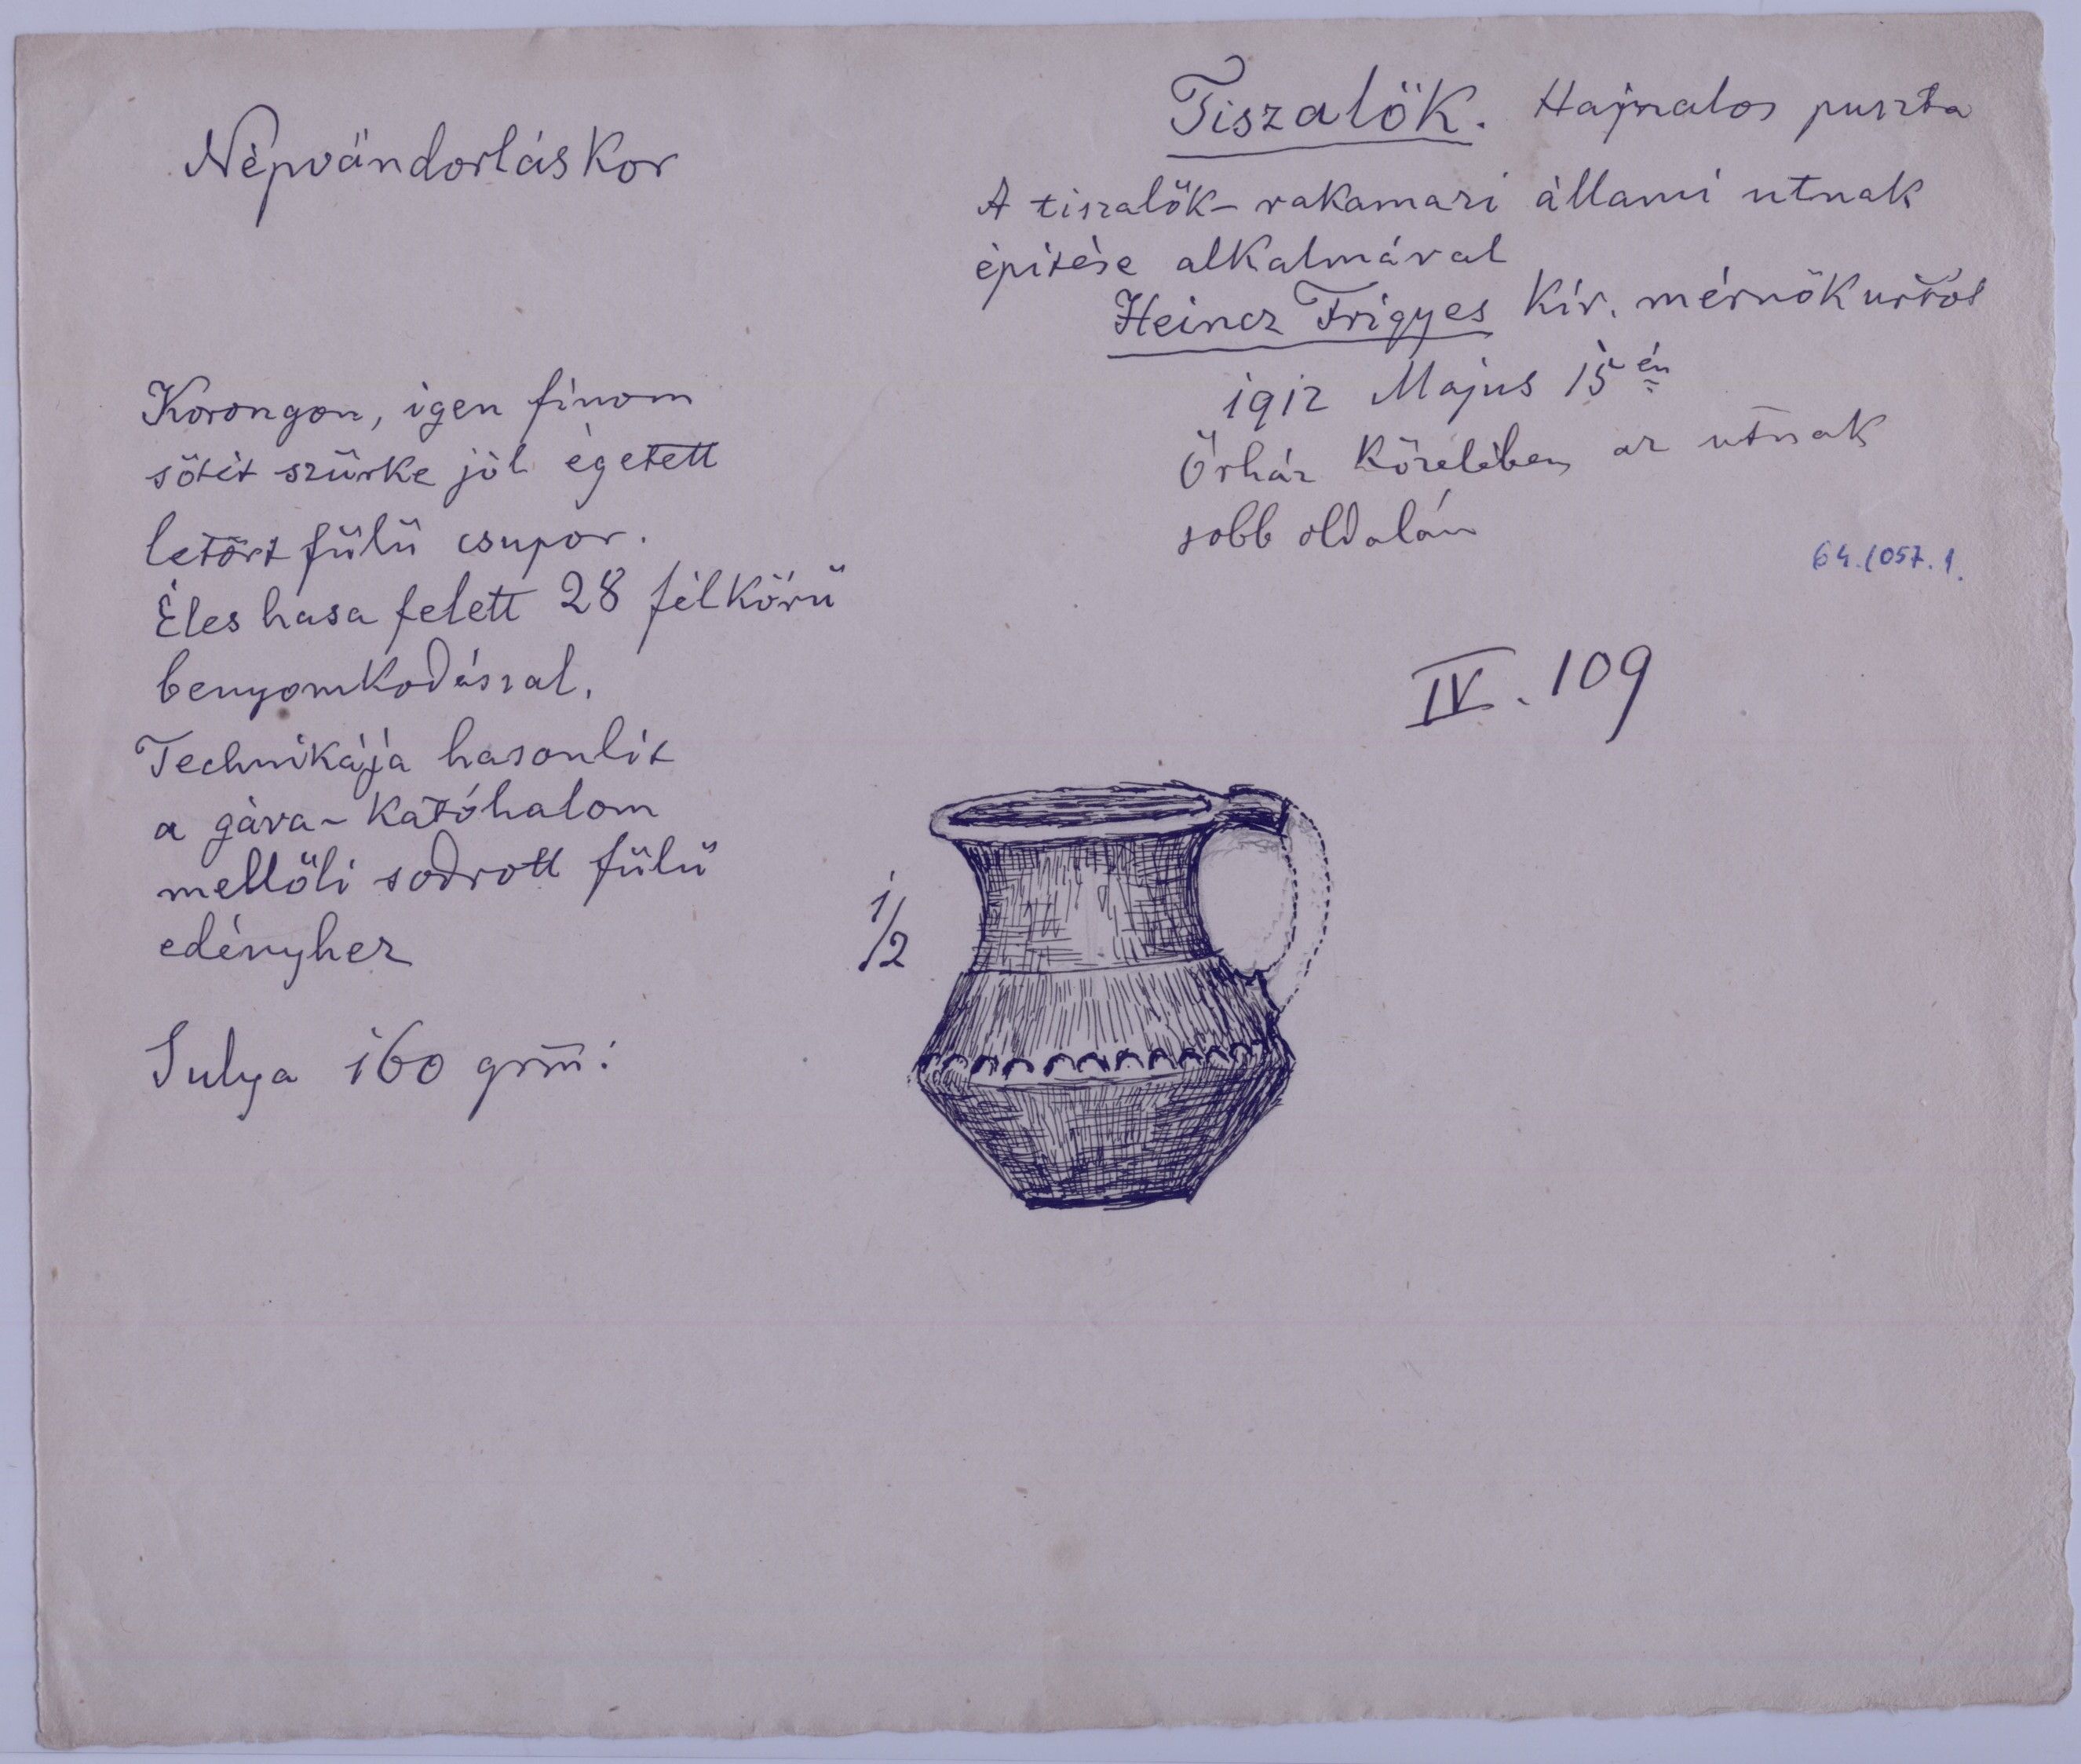 Népvándorláskor
Tiszalök. Hajnalos puszta
A tiszalök-rakamazi állami utnak
épitése alkalmával
Heincz Frigyes Kir. mérnök urtól
1912 Majus 15 én
Őrház közelében az utnak
jobb oldalán
64.1057.1.
IV. 109
Korongon, igen finom
sötét szürke jól égetett
letört fülü csupor.
Éles hasa felett 28 félkörü
benyomkodással.
Technikája hasonlit
a gáva-katóhalom
mellöli sodrott fülü
edényhez
Sulya 160 grm:
1/2